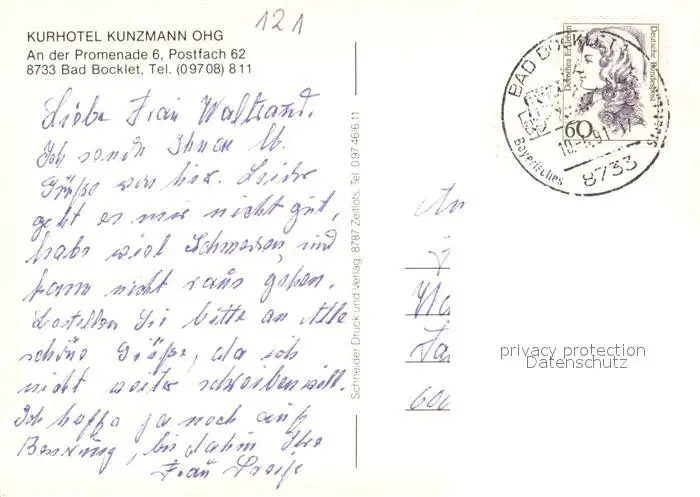 121
KURHOTEL KUNZMANN OHG
An der Promenade 6, Postfach 62
8733 Bad Bocklet, Tel. (09708) 811
Liebe Frau Waltraud.
Ich sende Ihnen lb.
Grüße von hier. Leider
geht es mir nicht gut,
habe viel Schmerzen, und
kann nicht raus gehen.
Bestellen Sie bitte an Alle
schöne Grüße, da ich
nicht weiter schreiben will.
Ich hoffe ja noch auf
Besserung, bis dahin Ihre
Frau
Schneider Druck und Verlag, 8787 Zeitlofs, Tel. 09746/611
Dorothea Erxleben
Deutsche Bundespost
60
BAD BOCKLET
Bayerisches
8733
An
600
privacy protection
Datenschutz